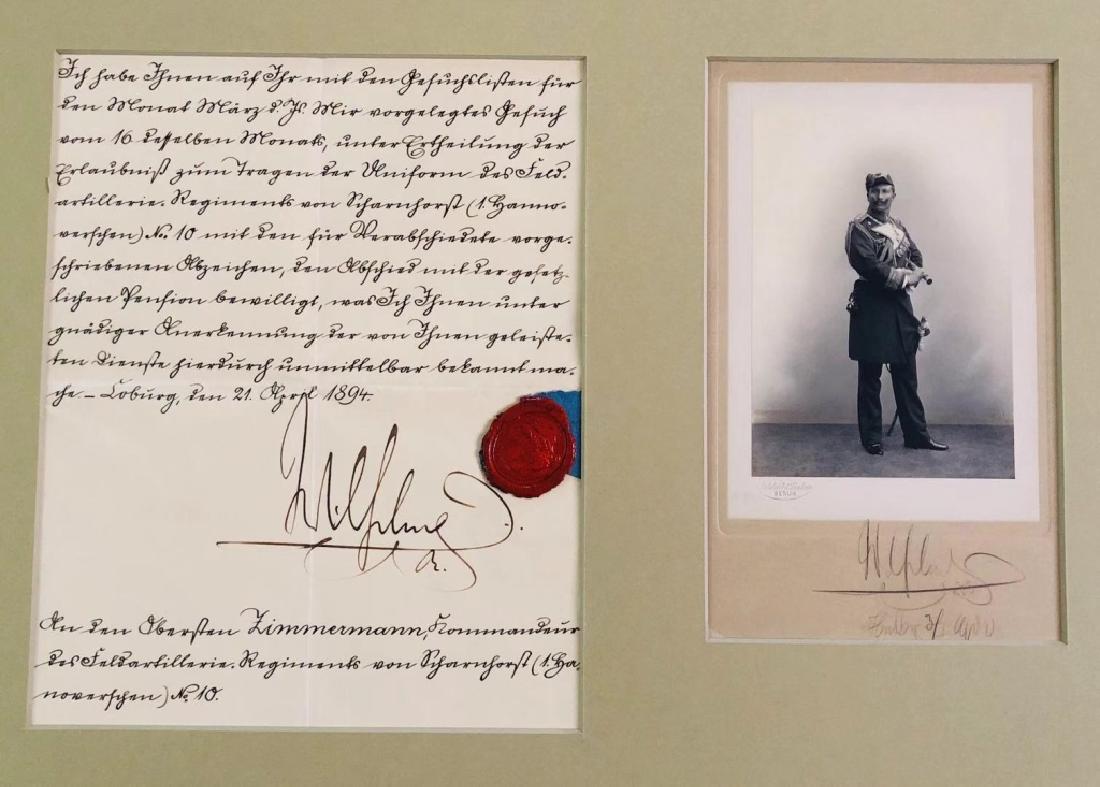 Ich habe Ihnen auf Ihr mit den Gesuchslisten für
den Monat März d. Js. Mir vorgelegtes Gesuch
vom 16 desselben Monats, unter Ertheilung der
Erlaubniß zum Tragen der Uniform des Feld-
artillerie-Regiments von Scharnhorst (1. Hanno-
verschen) No 10 mit den für Verabschiedete vorge-
schriebenen Abzeichen, den Abschied mit der gesetz-
lichen Pension bewilligt, was Ich Ihnen unter
gnädiger Anerkennung der von Ihnen geleiste-
ten Dienste hierdurch unmittelbar bekannt ma-
che. – Coburg, den 21. April 1894.
Wilhelm
R.
An den Obersten Zimmermann, Kommandeur
des Feldartillerie-Regiments von Scharnhorst (1. Ha-
noverschen) No 10.
BERLIN
Wilhelm